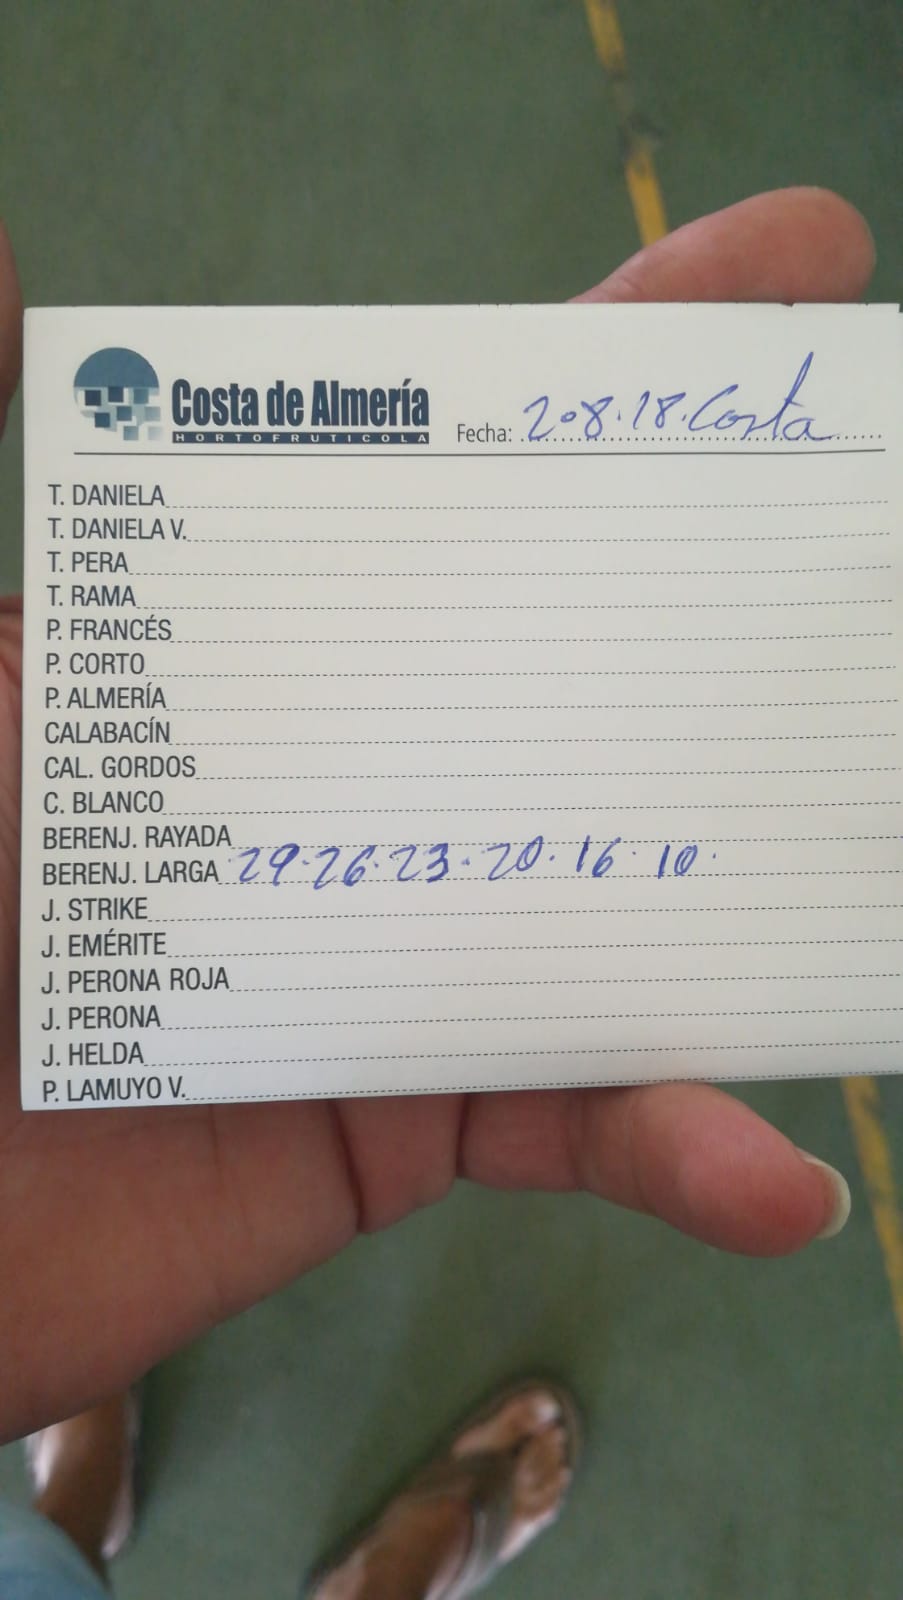 Costa de Almería
HORTOFRUTICOLA
Fecha: 2.8.18. Costa
T. DANIELA
T. DANIELA V.
T. PERA
T. RAMA
P. FRANCÉS
P. CORTO
P. ALMERÍA
CALABACÍN
CAL. GORDOS
C. BLANCO
BERENJ. RAYADA
BERENJ. LARGA 29.26.23.20.16.10.
J. STRIKE
J. EMÉRITE
J. PERONA ROJA
J. PERONA
J. HELDA
P. LAMUYO V.